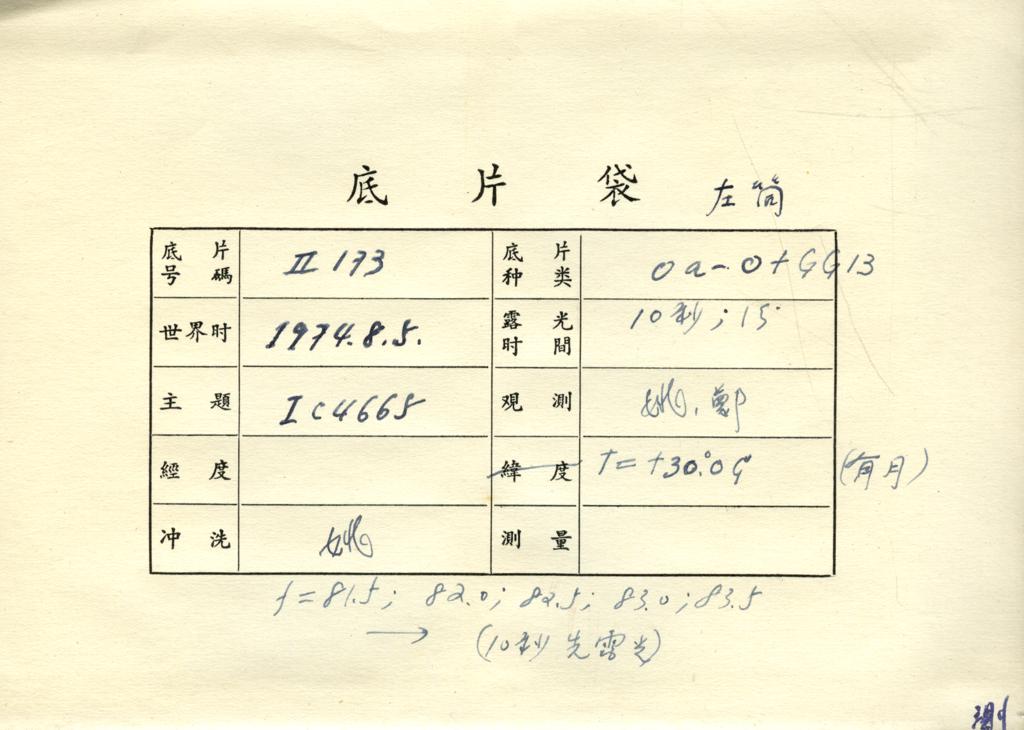 底片袋 左筒
底片号碼 II 173 底片种类 Oa-O+GG13
世界时 1974.8.5. 露光时間 10秒;15
主題 IC4665 观測 姚,鄭
經度 緯度 T=+30.°0 (有月)
冲洗 姚 測量
f=81.5; 82.0; 82.5; 83.0; 83.5
→ (10秒先露光)
測